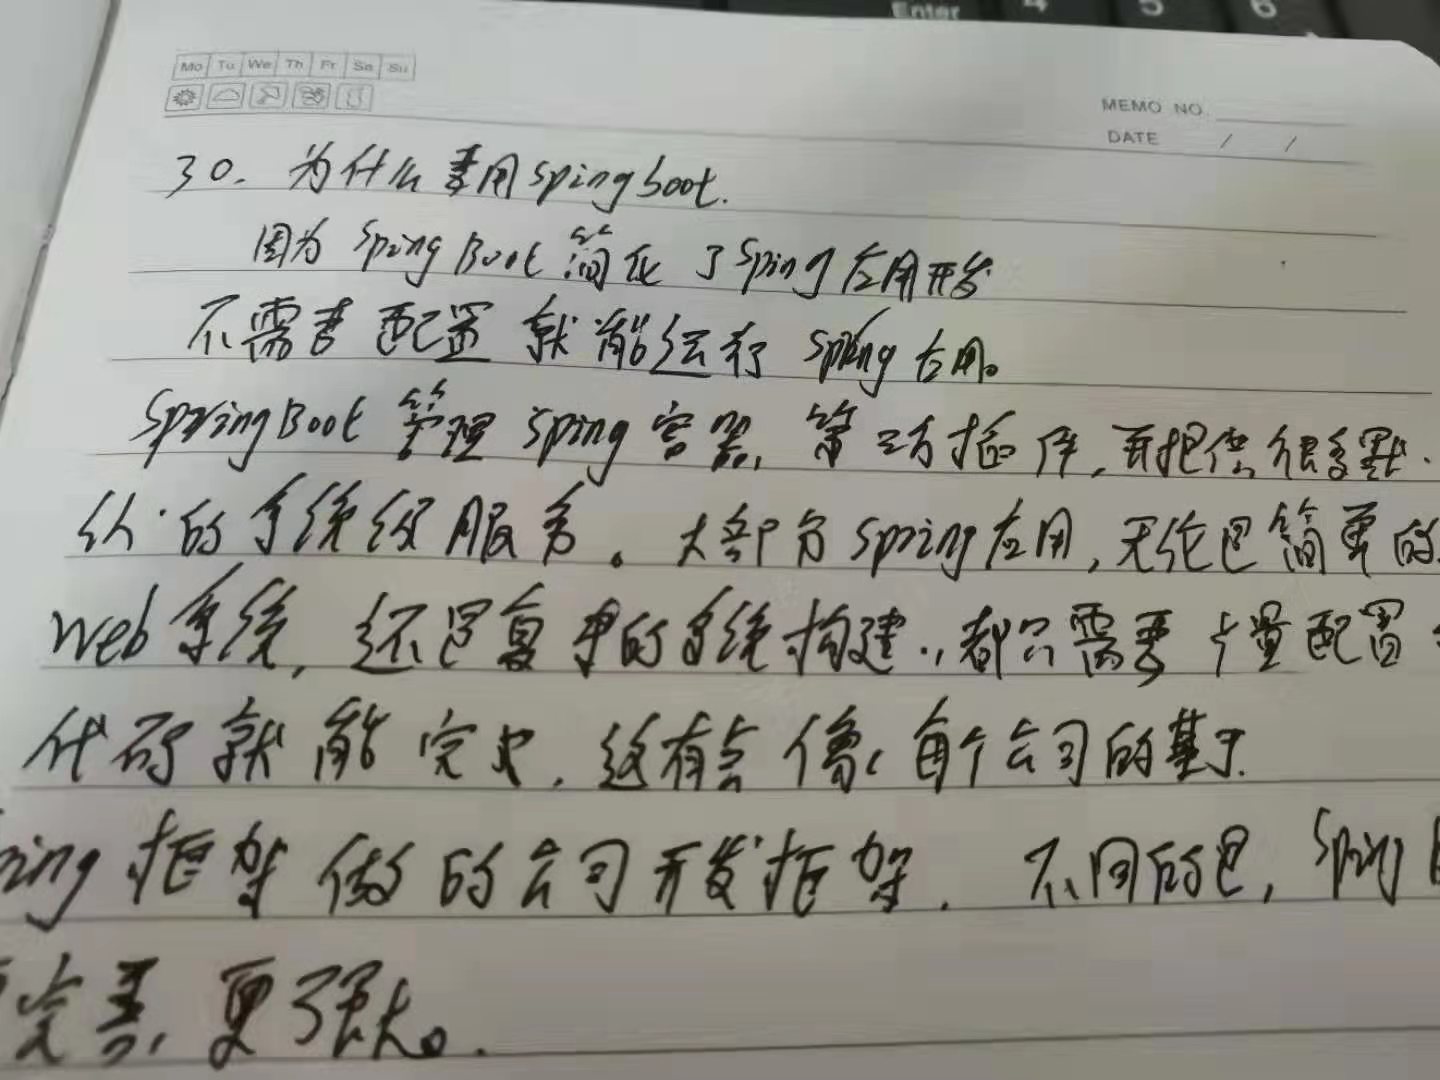 Enter 4 5 6
Mo Tu We Th Fr Sa Su
MEMO NO.
DATE / /
30. 为什么要用Spingboot.
因为 Spring Boot 简化了Sping应用开发
不需要配置就能运行 Spring应用。
SpringBoot 管理 Sping容器, 第三方插件, 并提供很多默
认的系统级服务。大部分Spring应用, 无论是简单的
Web系统, 还是复杂的系统构建, 都只需要少量配置
代码就能完成, 这有点像, 每个公司的基于
ring 框架做的公司开发框架. 不同的是, Spring B
完善, 更强大。